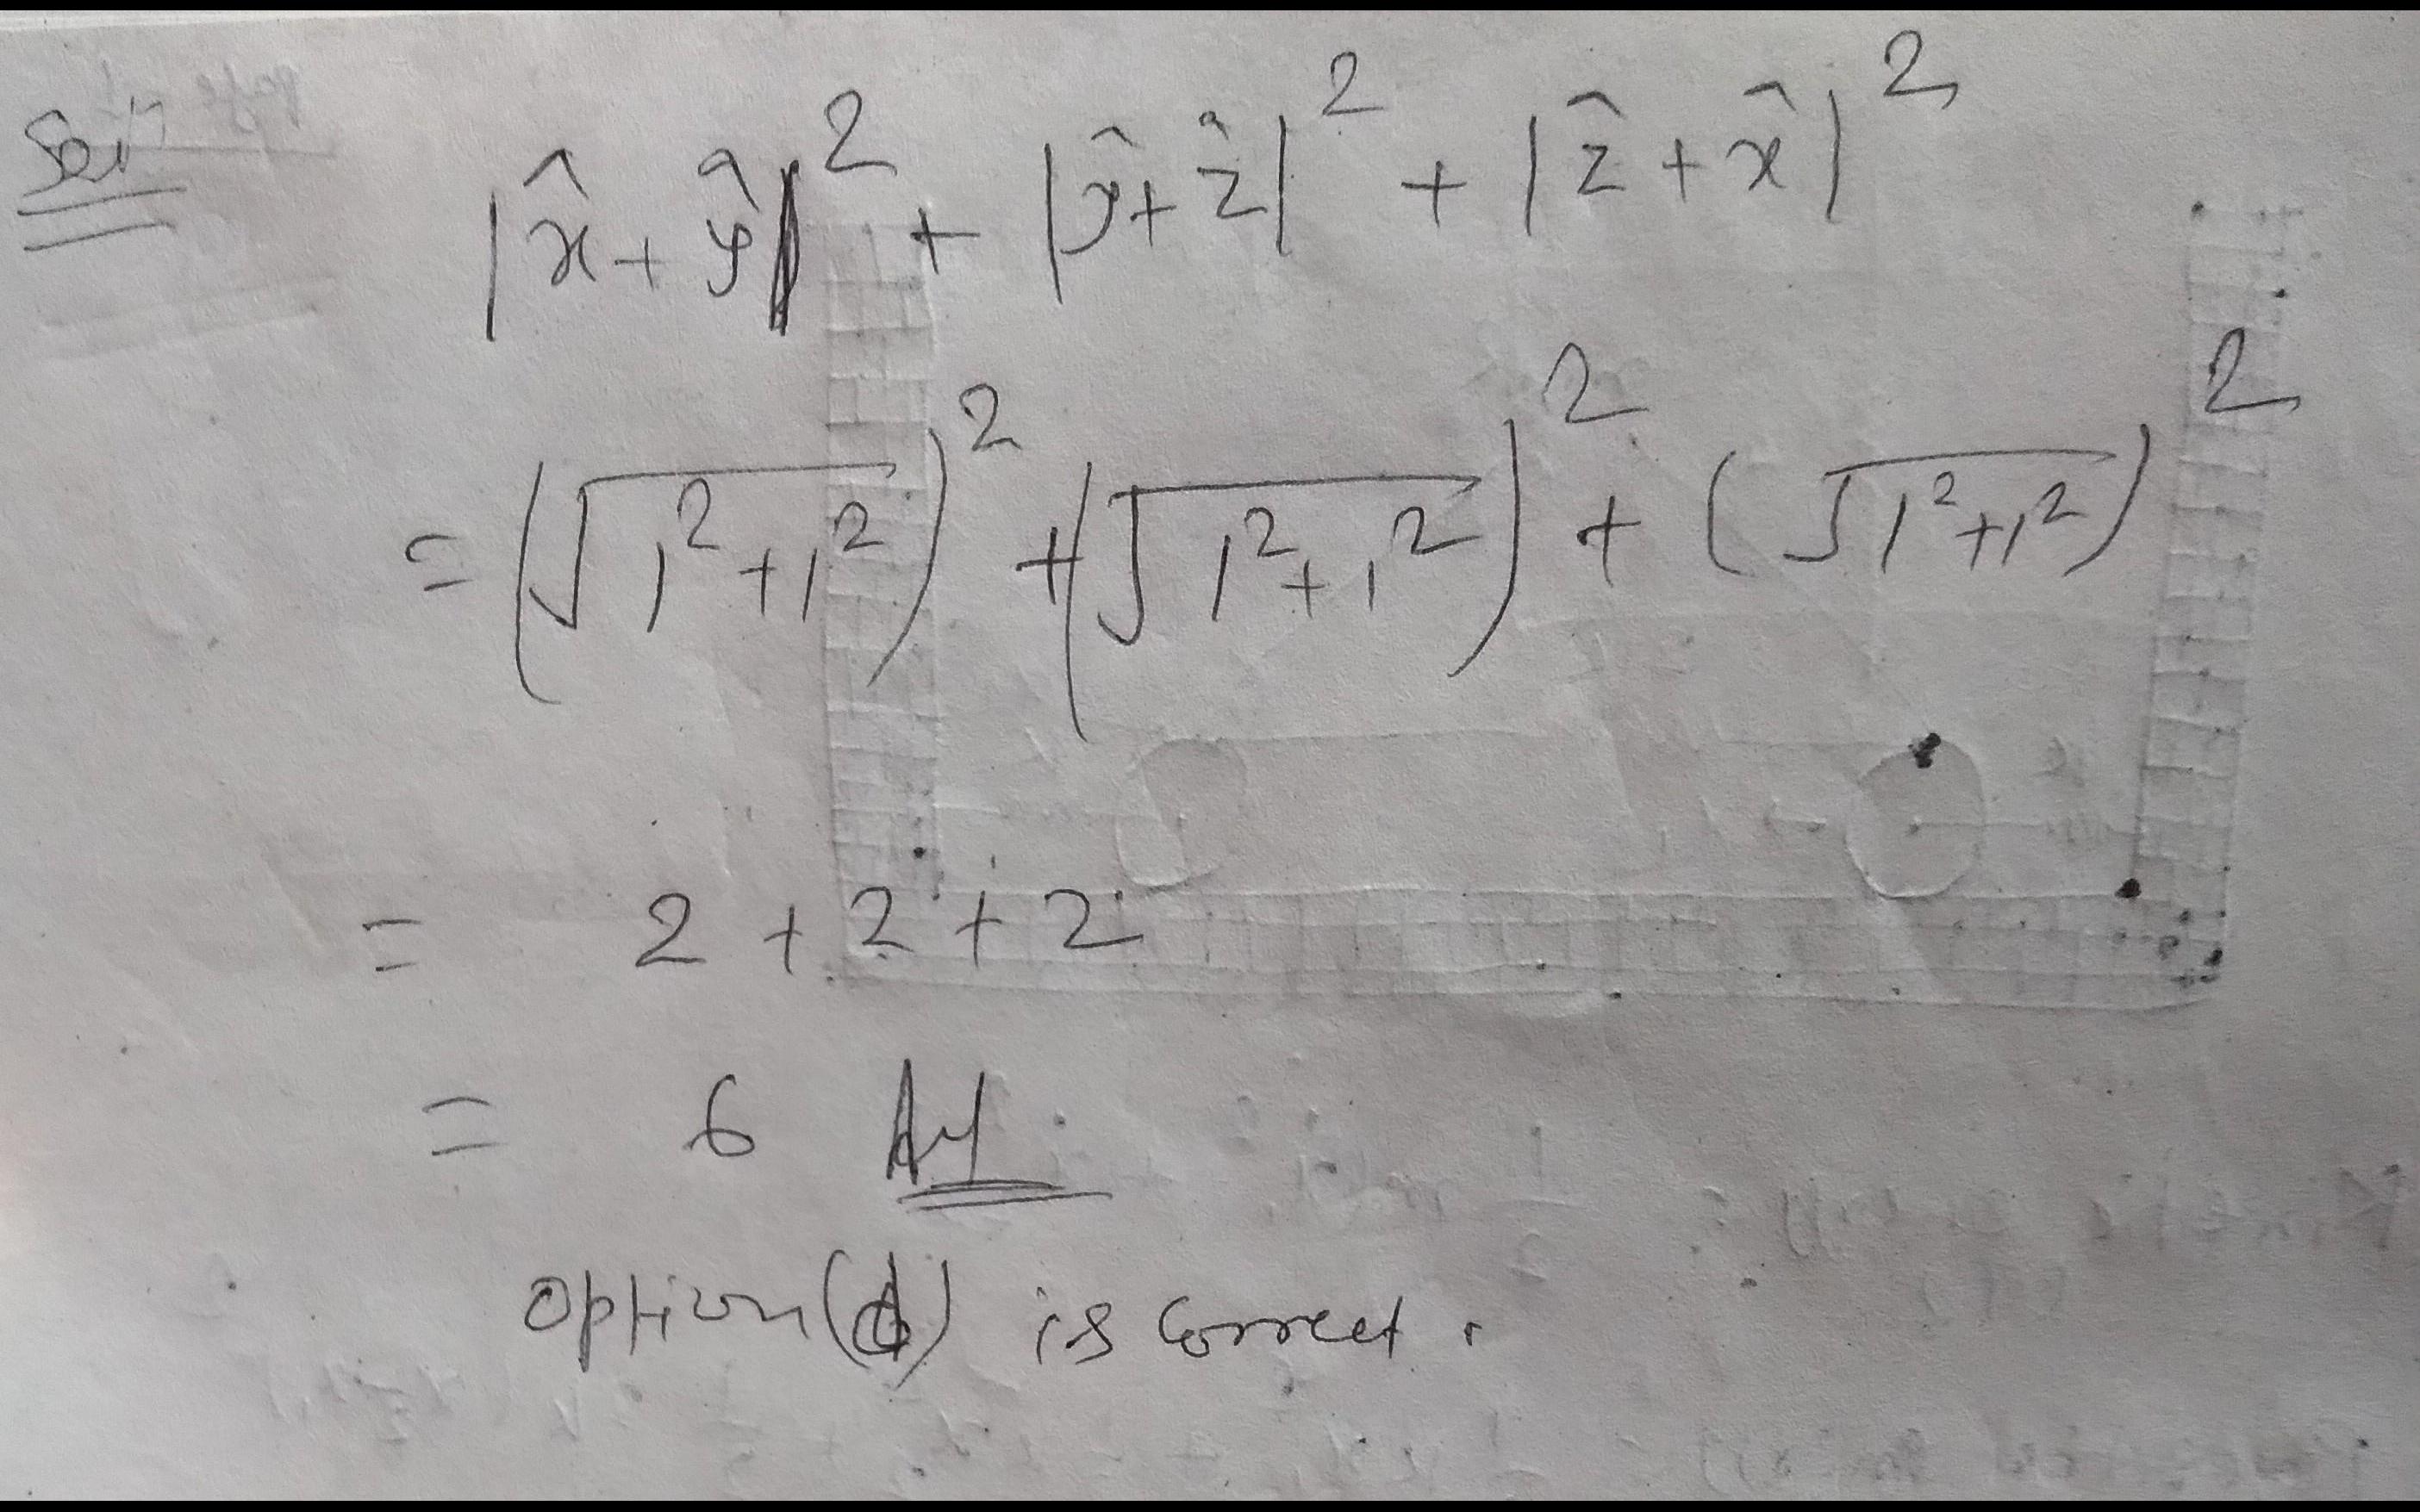 Sol:
|x̂+ŷ|² + |ŷ+ẑ|² + |ẑ+x̂|²
= (√1²+1²)² + (√1²+1²)² + (√1²+1²)²
= 2+2+2
= 6 Ans.
option(d) is correct.